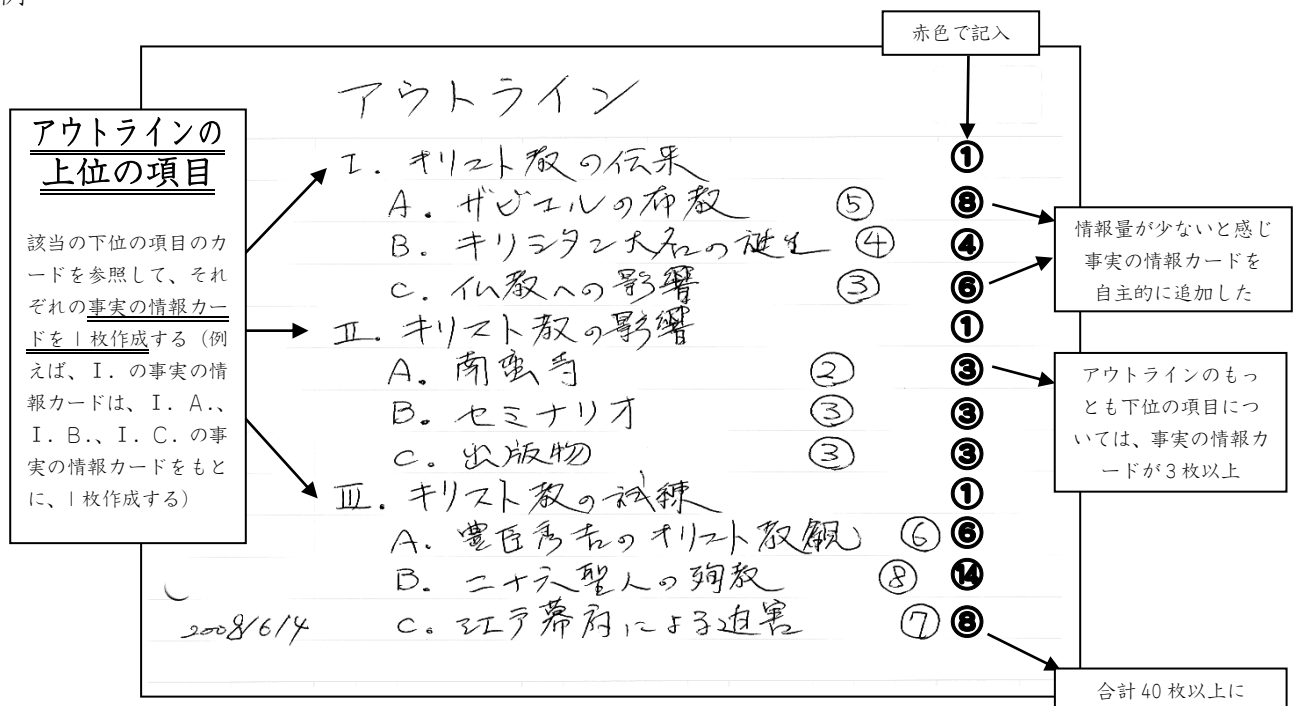 例
赤色で記入
アウトラインの
上位の項目
該当の下位の項目のカ
ードを参照して、それ
ぞれの事実の情報カー
ドを1枚作成する（例
えば、Ⅰ．の事実の情
報カードは、Ⅰ．A．、
Ⅰ．B．、Ⅰ．C．の事
実の情報カードをもと
に、1枚作成する）
アウトライン
Ⅰ. キリスト教の伝来 ①
A. ザビエルの布教 ⑤ ⑧
B. キリシタン大名の誕生 ④ ④
C. 仏教への影響 ③ ⑥
Ⅱ. キリスト教の影響 ①
A. 南蛮寺 ② ③
B. セミナリオ ③ ③
C. 出版物 ③ ③
Ⅲ. キリスト教の試練 ①
A. 豊臣秀吉のキリスト教観 ⑥ ⑥
B. 二十六聖人の殉教 ⑧ ⑭
C. 江戸幕府による迫害 ⑦ ⑧
2008/6/4
情報量が少ないと感じ
事実の情報カードを
自主的に追加した
アウトラインのもっ
とも下位の項目につ
いては、事実の情報カ
ードが3枚以上
合計40枚以上に